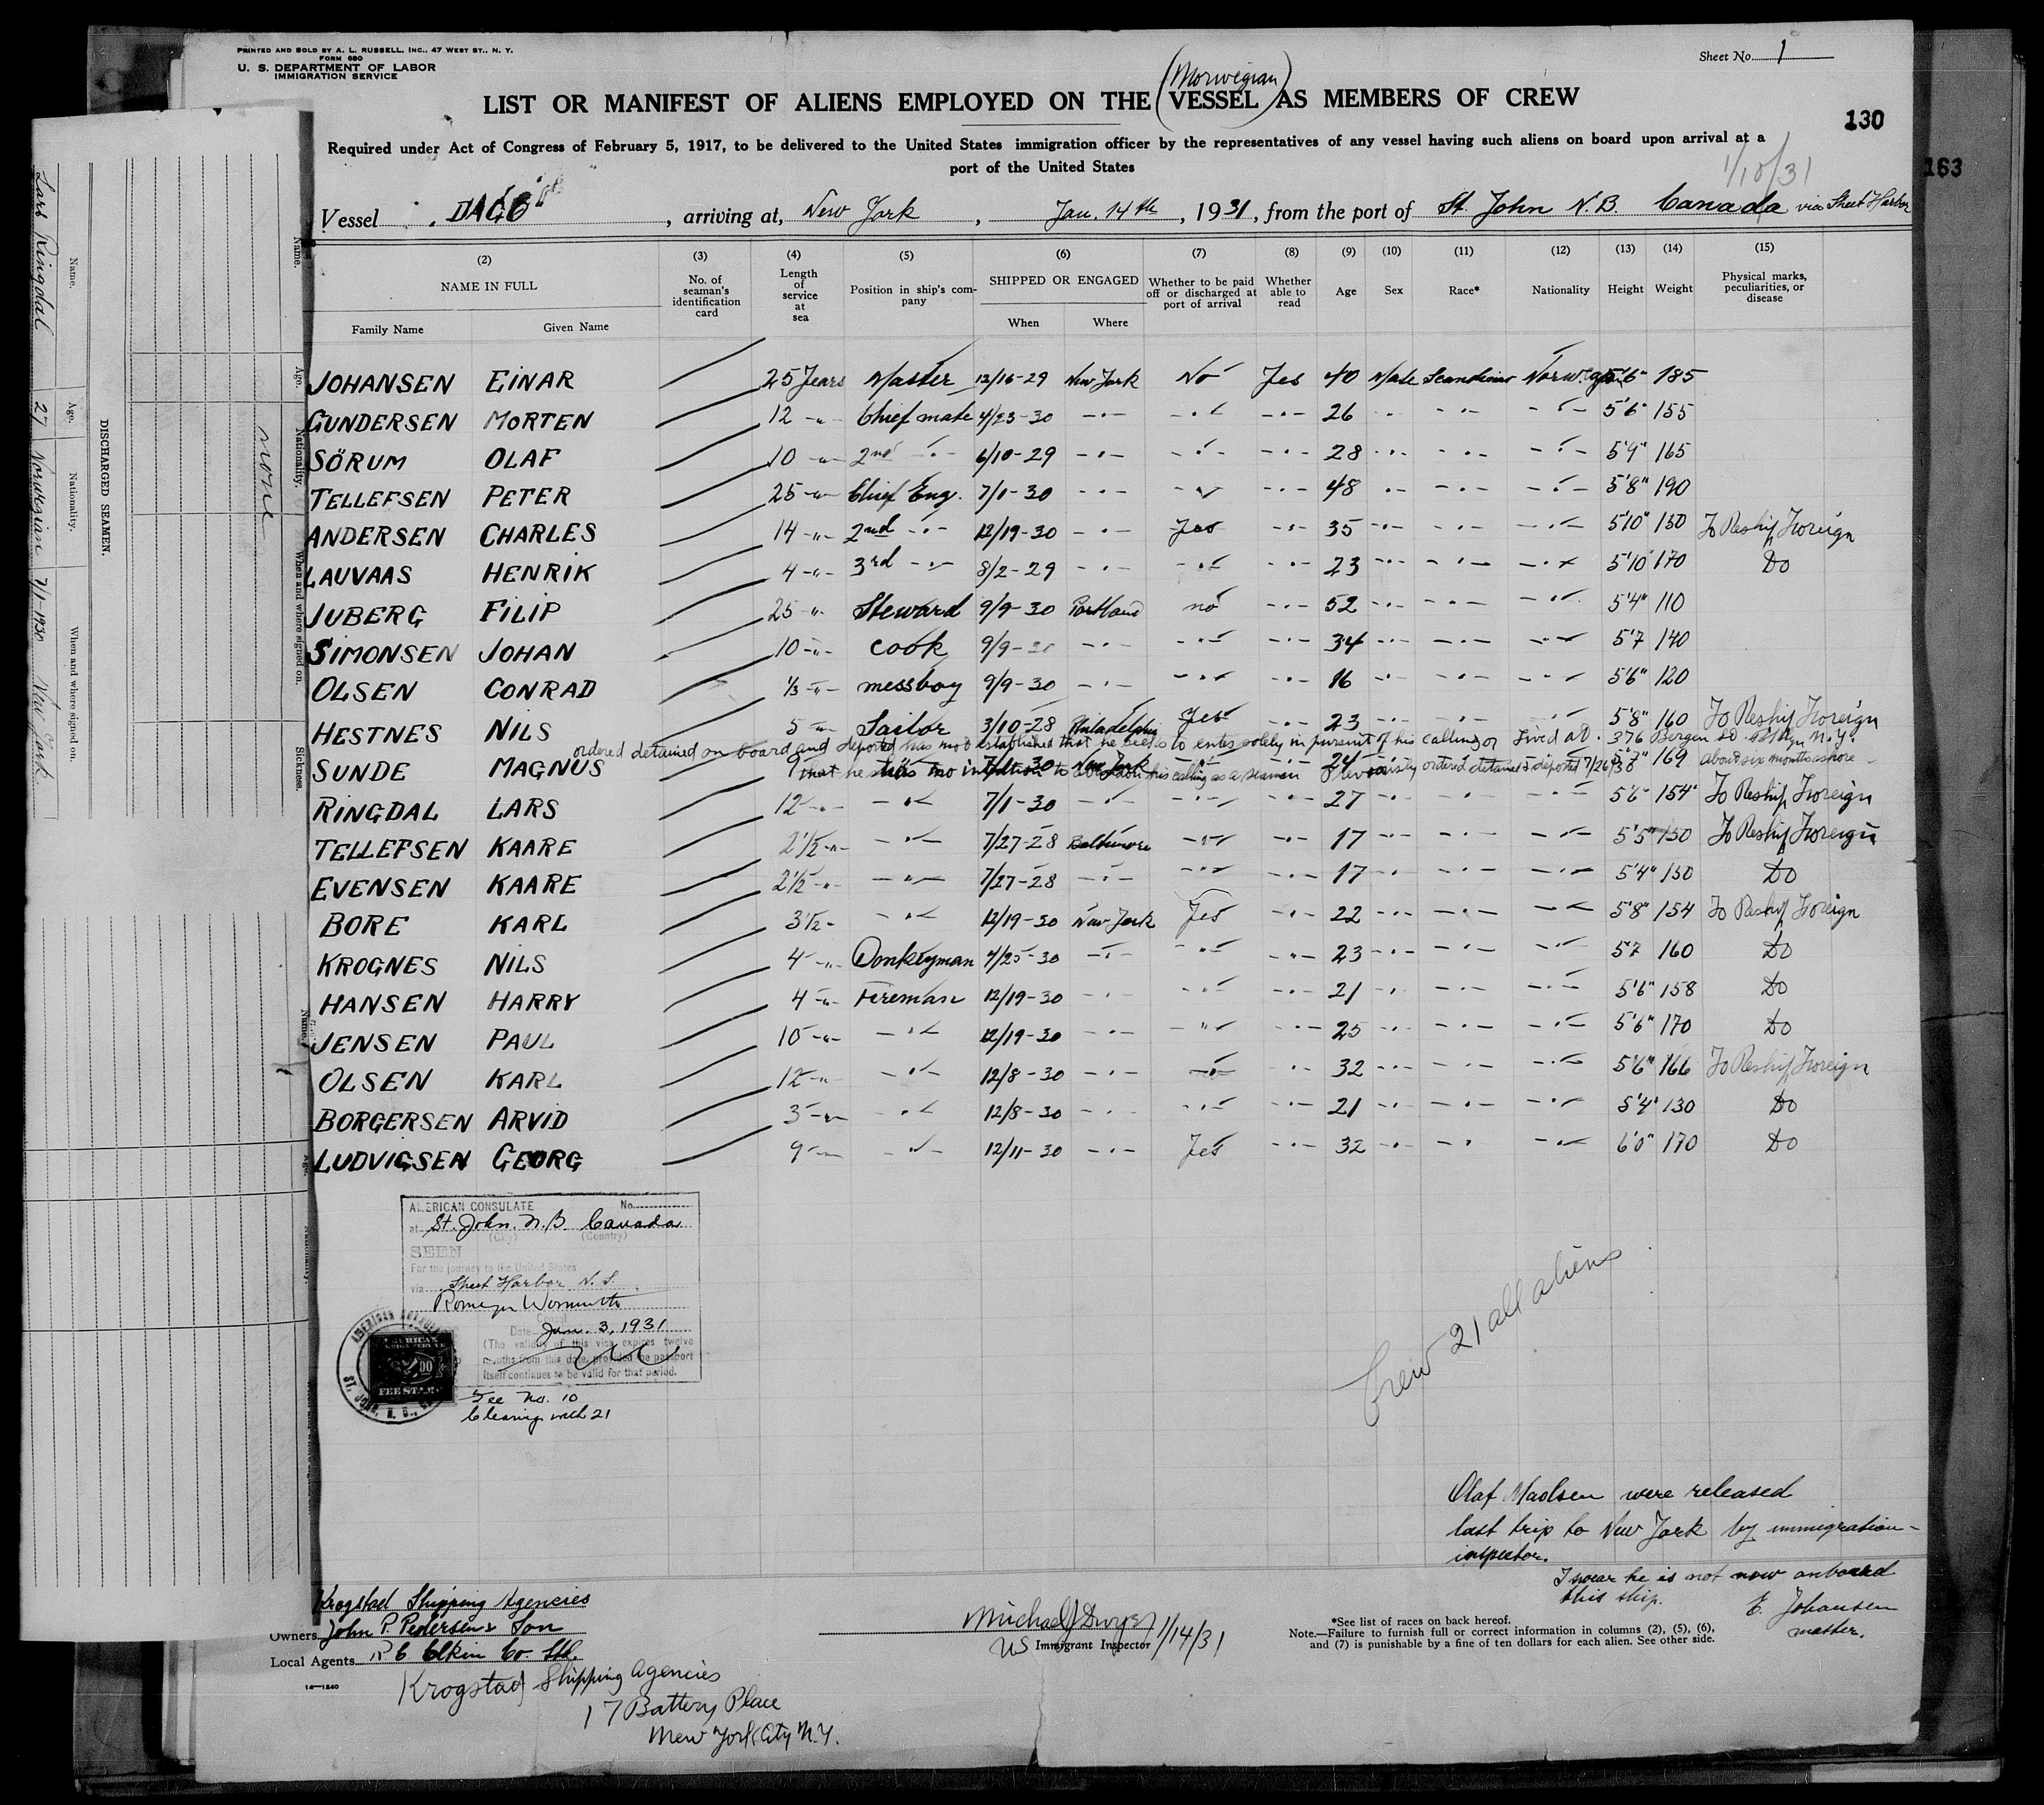 PRINTED AND SOLD BY A. L. RUSSELL, INC., 47 WEST ST., N. Y.
FORM 680
U. S. DEPARTMENT OF LABOR
IMMIGRATION SERVICE
Sheet No. 1
(Norwegian)
LIST OR MANIFEST OF ALIENS EMPLOYED ON THE VESSEL AS MEMBERS OF CREW
130
Required under Act of Congress of February 5, 1917, to be delivered to the United States immigration officer by the representatives of any vessel having such aliens on board upon arrival at a
port of the United States
1/10/31
163
Vessel DAGO, arriving at, New York, Jan. 14th, 1931, from the port of St John N.B. Canada via Sheet Harbor
(2) (3) (4) (5) (6) (7) (8) (9) (10) (11) (12) (13) (14) (15)
NAME IN FULL No. of seaman's identification card Length of service at sea Position in ship's company SHIPPED OR ENGAGED Whether to be paid off or discharged at port of arrival Whether able to read Age Sex Race* Nationality Height Weight Physical marks, peculiarities, or disease
Family Name Given Name When Where
JOHANSEN EINAR 25 Years Master 12/16-29 New York No Yes 40 Male Scandinav Norwegian 5'6" 185
GUNDERSEN MORTEN 12 -"- Chief mate 4/23-30 -"- -"- -"- 26 -"- -"- -"- 5'6" 155
SÖRUM OLAF 10 -"- 2nd -"- 6/10-29 -"- -"- -"- 28 -"- -"- -"- 5'9" 165
TELLEFSEN PETER 25 -"- Chief Eng. 7/1-30 -"- -"- -"- 48 -"- -"- -"- 5'8" 190
ANDERSEN CHARLES 14 -"- 2nd -"- 12/19-30 -"- Yes -"- 35 -"- -"- -"- 5'10" 150 To Reship Foreign
LAUVAAS HENRIK 4 -"- 3rd -"- 8/2-29 -"- -"- -"- 23 -"- -"- -"- 5'10" 170 Do
JUBERG FILIP 25 -"- Steward 9/9-30 Portland no -"- 52 -"- -"- -"- 5'4" 110
SIMONSEN JOHAN 10 -"- cook 9/9-30 -"- -"- -"- 34 -"- -"- -"- 5'7 140
OLSEN CONRAD 1/3 -"- messboy 9/9-30 -"- -"- -"- 16 -"- -"- -"- 5'6" 120
HESTNES NILS 5 -"- Sailor 3/10-28 Philadelphia Yes -"- 23 -"- -"- -"- 5'8" 160 To Reship Foreign
ordered detained on board and deported has not established that he seeks to enter solely in pursuit of his calling or Lived at 376 Bergen St. Bklyn N.Y.
SUNDE MAGNUS 9 -"- 7/1-30 New York -"- -"- 24 5'7" 169 about six months ashore
that he has no intention to abandon his calling as a seaman Previously ordered detained & deported 7/26/30
RINGDAL LARS 12 -"- -"- 7/1-30 -"- -"- -"- 27 -"- -"- -"- 5'6" 154 To Reship Foreign
TELLEFSEN KAARE 2 1/2 -"- -"- 7/27-28 Baltimore -"- -"- 17 -"- -"- -"- 5'5" 150 To Reship Foreign
EVENSEN KAARE 2 1/2 -"- -"- 7/27-28 -"- -"- -"- 17 -"- -"- -"- 5'4" 150 Do
BORE KARL 3 1/2 - -"- 12/19-30 New York Yes -"- 22 -"- -"- -"- 5'8" 154 To Reship Foreign
KROGNES NILS 4 -"- Donkeyman 4/25-30 -"- -"- -"- 23 -"- -"- -"- 5'7 160 Do
HANSEN HARRY 4 -"- Fireman 12/19-30 -"- -"- -"- 21 -"- -"- -"- 5'6" 158 Do
JENSEN PAUL 10 -"- -"- 12/19-30 -"- -"- -"- 25 -"- -"- -"- 5'6" 170 Do
OLSEN KARL 12 -"- -"- 12/8-30 -"- -"- -"- 32 -"- -"- -"- 5'6" 166 To Reship Foreign
BORGERSEN ARVID 3 -"- -"- 12/8-30 -"- -"- -"- 21 -"- -"- -"- 5'4" 130 Do
LUDVIGSEN GEORG 9 -"- -"- 12/11-30 -"- Yes -"- 32 -"- -"- -"- 6'0" 170 Do
AMERICAN CONSULATE No.
at St. John. N.B. Canada
(City) (Country)
SEEN
For the journey to the United States
via Sheet Harbor N.S.
Romeyn Wormuth
Date Jan. 3, 1931
(The validity of this visa expires twelve
months from this date, provided the passport
itself continues to be valid for that period.
FEE STAMP
Fee No. 10
Clearing with 21
Crew 21 all aliens
Olaf Madsen were released
last trip to New York by immigration-
inspector.
I swear he is not now onboard
this ship.
E. Johansen
master.
Krogstad Shipping Agencies
Owners John P. Pedersen & Son
Local Agents R C Elkin Co. Ltd.
14—1240
Krogstad Shipping Agencies
17 Battery Place
New York City N.Y.
Michael J Dwyer 1/14/31
US Immigrant Inspector
*See list of races on back hereof.
Note.—Failure to furnish full or correct information in columns (2), (5), (6),
and (7) is punishable by a fine of ten dollars for each alien. See other side.
DISCHARGED SEAMEN.
Name. Age. Nationality. When and where signed on.
Lars Ringdal 27 Norwegian 7/1-1930 New York.
Name. Age. Nationality. When and where signed on. Sickness.
none